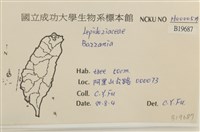 國立成功大學生物系標本館 NCKU NO
B19687
Lepidoziaceae
Bazzania
Hab. tree 150cm
Loc. 阿里山公路 000073
Coll. C.Y.Fu
Date Det. C.Y.Fu
B19687